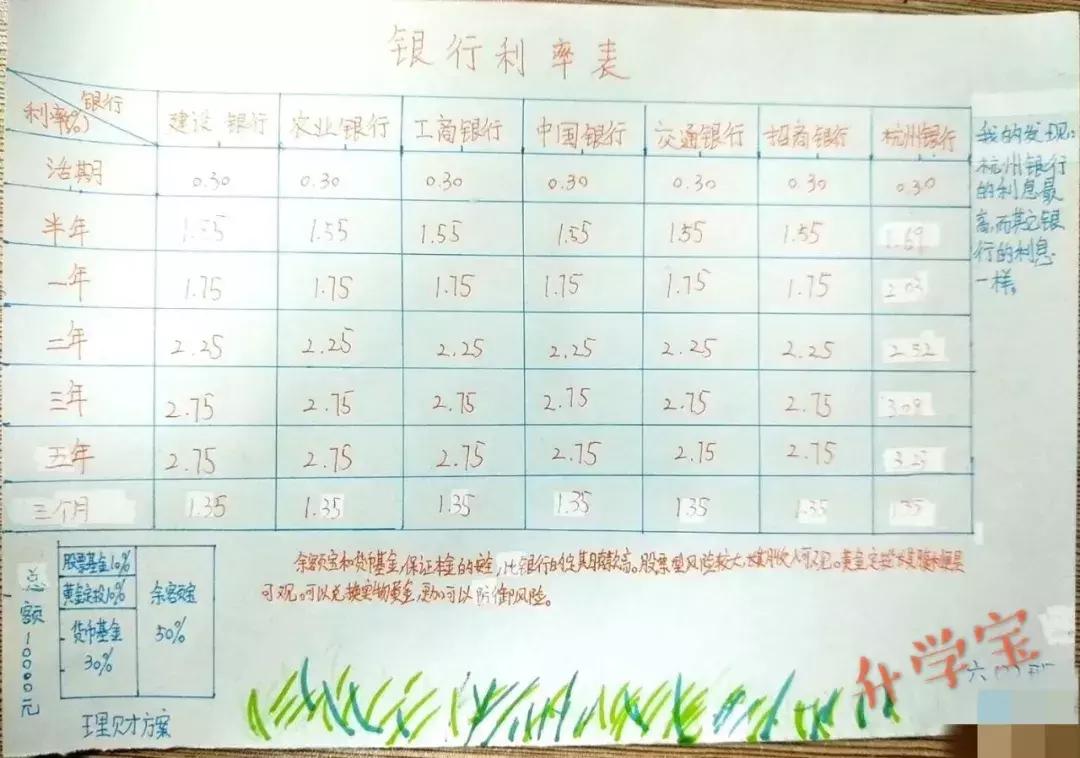 银行利率表
银行
利率(%) 建设银行 农业银行 工商银行 中国银行 交通银行 招商银行 杭州银行
活期 0.30 0.30 0.30 0.30 0.30 0.30 0.30
半年 1.55 1.55 1.55 1.55 1.55 1.55 1.69
一年 1.75 1.75 1.75 1.75 1.75 1.75 2.03
二年 2.25 2.25 2.25 2.25 2.25 2.25 2.52
三年 2.75 2.75 2.75 2.75 2.75 2.75 3.09
五年 2.75 2.75 2.75 2.75 2.75 2.75
三个月 1.35 1.35 1.35 1.35 1.35 1.35 1.35
我的发现:
杭州银行
的利息最
高,而其它银
行的利息
一样。
总额10000元
股票基金10%
黄金定投10%
货币基金
30%
余额宝
50%
理财方案
余额宝和货币基金,保证本金的安全,比银行的定期存款高。股票型风险较大,长期收入可观。黄金定投长期
可观。可以兑换实物黄金,更加可以防御风险。
升学宝